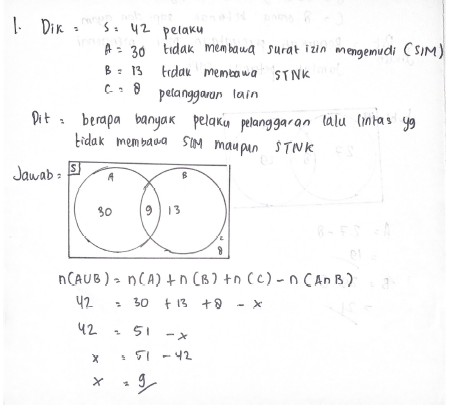 1. Dik = S = 42 pelaku
A = 30 tidak membawa surat izin mengemudi (SIM)
B = 13 tidak membawa STNK
C = 8 pelanggaran lain
Dit = berapa banyak pelaku pelanggaran lalu lintas yg
tidak membawa SIM maupun STNK
Jawab =
S
A B
30 9 13
C
8
n(AUB) = n(A) + n(B) + n(C) - n(AnB)
42 = 30 + 13 + 8 - x
42 = 51 - x
x = 51 - 42
x = 9